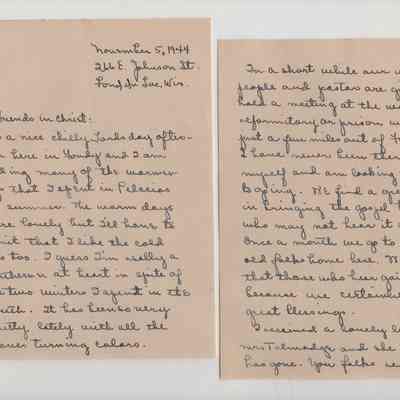 November 5, 1944
266 E. Johnson St.
Fond du Lac, Wis.
friends in Christ:
a nice chilly Lord's day after-
n here in Fondy and I am
ing many of the warmer
s that I spent in
summer. The warm days
re lovely but I'll have to
mit that I like the cold
s too. I guess I'm really a
thern at heart in spite of
two winters I spent in the
uth. It has been so very
etty lately with all the
aves turning colors.
In a short while our
people and pastor are
hold a meeting at the
reformitory or prison
just a few miles out of
I have never been there
myself and am looking
going. We find a
in bringing the gospel
who may not hear it
Once a month we go to
old folks home here. W
that those who hear
because we certain
great blessings.
I received a lovely
Mrs Talmadge and she
has gone. You folks